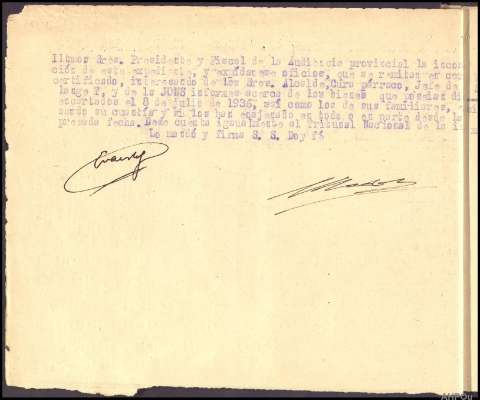 Iltmos Sres. Presidente y Fiscal de la Audiencia provincial la
ción de este expediente, y expídanse oficios, que se remitan en
certificado, interesando de los Sres. Alcalde, Cura párroco, Jefe de
lange T. y de la JONS informes acerca de los bienes que poseían
encartados el 8 de Julio de 1936, así como los de sus familiares,
sando su cuantía y si los han enajenado en todo o en parte desde la
presada fecha. Dese cuenta igualmente al Tribunal Nacional de la
Lo mandó y firma S. S. Doy fé